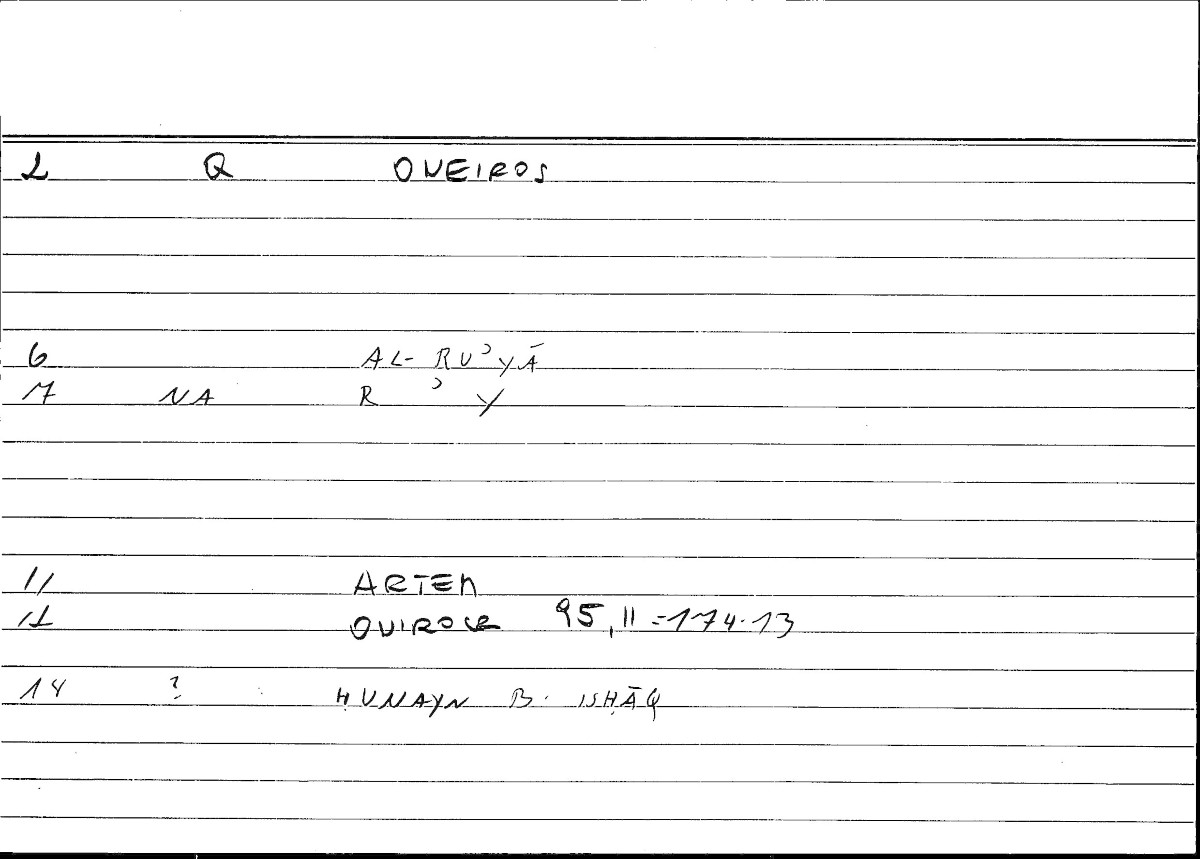 2 Q ONEIROS
6 AL-RUʾYĀ
7 NA R ʾ Y
11 ARTEM
12 ONIROCR 95,11 = 174.13
14 ? ḤUNAYN B. ISḤĀQ